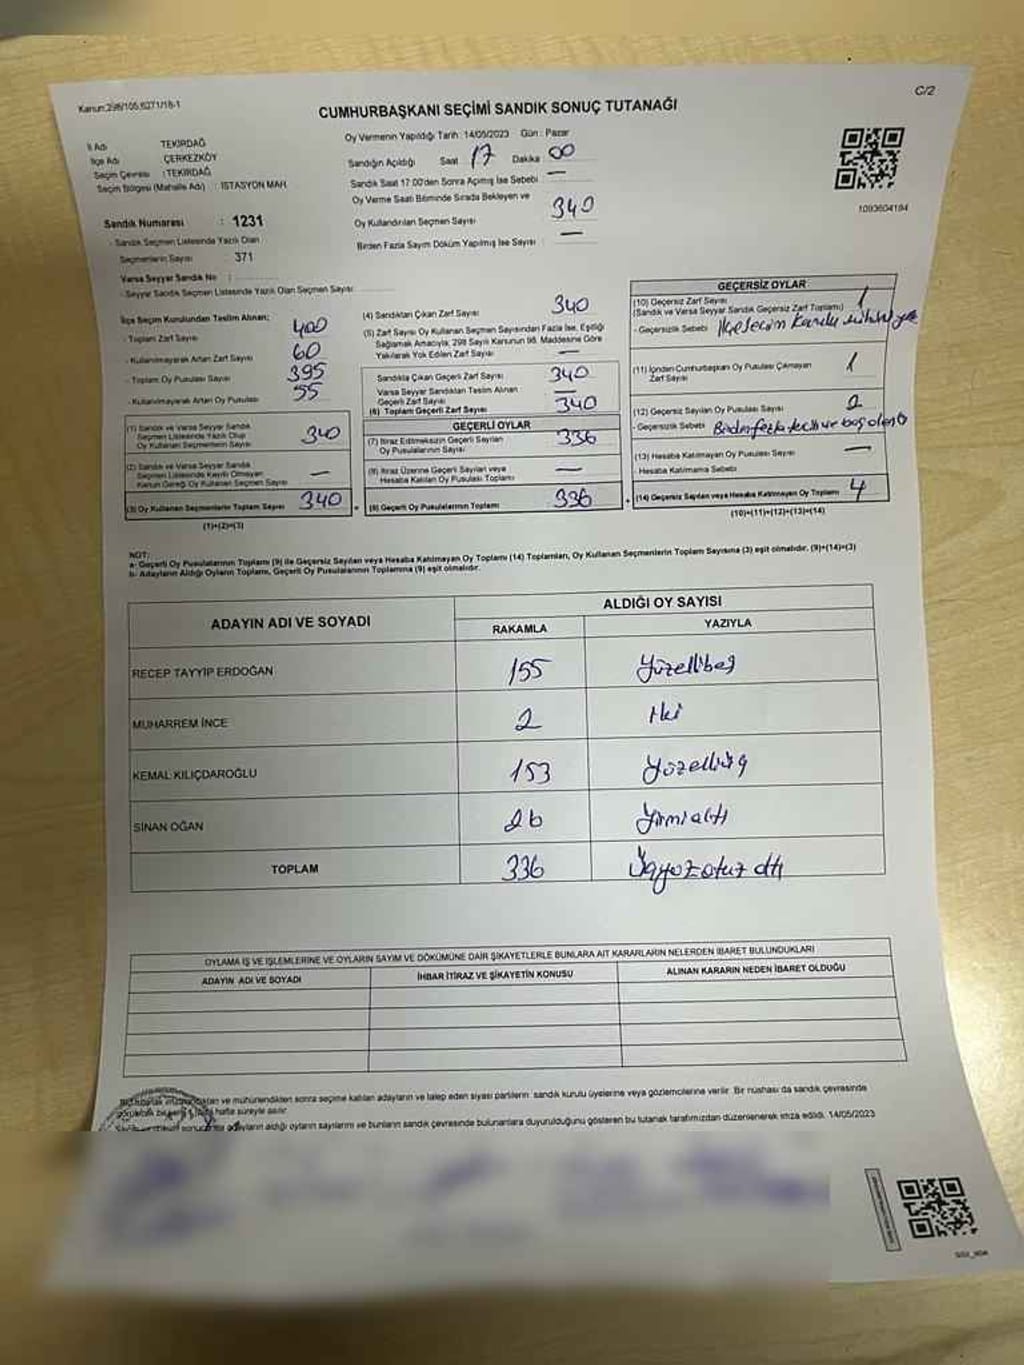 Kanun:298/105,6271/18-1
C/2
CUMHURBAŞKANI SEÇİMİ SANDIK SONUÇ TUTANAĞI
İl Adı TEKİRDAĞ
İlçe Adı ÇERKEZKÖY
Seçim Çevresi : TEKİRDAĞ
Seçim Bölgesi (Mahalle Adı) : İSTASYON MAH.
Sandık Numarası : 1231
- Sandık Seçmen Listesinde Yazılı Olan
Seçmenlerin Sayısı 371
Varsa Seyyar Sandık No :
- Seyyar Sandık Seçmen Listesinde Yazılı Olan Seçmen Sayısı
Oy Vermenin Yapıldığı Tarih : 14/05/2023 Gün : Pazar
Sandığın Açıldığı Saat 17 Dakika 00
Sandık Saat 17:00'den Sonra Açılmış İse Sebebi —
Oy Verme Saati Bitiminde Sırada Bekleyen ve
Oy Kullandırılan Seçmen Sayısı 340
Birden Fazla Sayım Döküm Yapılmış İse Sayısı : —
1093604184
İlçe Seçim Kurulundan Teslim Alınan;
- Toplam Zarf Sayısı 400
- Kullanılmayarak Artan Zarf Sayısı 60
- Toplam Oy Pusulası Sayısı 395
- Kullanılmayarak Artan Oy Pusulası 55
(1) Sandık ve Varsa Seyyar Sandık
Seçmen Listesinde Yazılı Olup
Oy Kullanan Seçmenlerin Sayısı 340
(2) Sandık ve Varsa Seyyar Sandık
Seçmen Listesinde Kayıtlı Olmayan
Kanun Gereği Oy Kullanan Seçmen Sayısı —
(3) Oy Kullanan Seçmenlerin Toplam Sayısı 340
(1)+(2)=(3)
(4) Sandıktan Çıkan Zarf Sayısı 340
(5) Zarf Sayısı Oy Kullanan Seçmen Sayısından Fazla İse, Eşitliği
Sağlamak Amacıyla, 298 Sayılı Kanunun 98. Maddesine Göre
Yakılarak Yok Edilen Zarf Sayısı —
Sandıkta Çıkan Geçerli Zarf Sayısı 340
Varsa Seyyar Sandıktan Teslim Alınan
Geçerli Zarf Sayısı —
(6) Toplam Geçerli Zarf Sayısı 340
GEÇERLİ OYLAR
(7) İtiraz Edilmeksizin Geçerli Sayılan
Oy Pusulalarının Sayısı 336
(8) İtiraz Üzerine Geçerli Sayılan veya
Hesaba Katılan Oy Pusulası Toplamı —
= (9) Geçerli Oy Pusulalarının Toplamı 336
GEÇERSİZ OYLAR
(10) Geçersiz Zarf Sayısı 1
(Sandık ve Varsa Seyyar Sandık Geçersiz Zarf Toplamı)
- Geçersizlik Sebebi İlçe Seçim Kurulu
(11) İçinden Cumhurbaşkanı Oy Pusulası Çıkmayan 1
Zarf Sayısı
(12) Geçersiz Sayılan Oy Pusulası Sayısı 2
- Geçersizlik Sebebi Birden fazla tercih ve boş olan
(13) Hesaba Katılmayan Oy Pusulası Sayısı —
- Hesaba Katılmama Sebebi
+ (14) Geçersiz Sayılan veya Hesaba Katılmayan Oy Toplamı 4
(10)+(11)+(12)+(13)=(14)
NOT:
a- Geçerli Oy Pusulalarının Toplamı (9) ile Geçersiz Sayılan veya Hesaba Katılmayan Oy Toplamı (14) Toplamları, Oy Kullanan Seçmenlerin Toplam Sayısına (3) eşit olmalıdır. (9)+(14)=(3)
b- Adayların Aldığı Oyların Toplamı, Geçerli Oy Pusulalarının Toplamına (9) eşit olmalıdır.
ADAYIN ADI VE SOYADI ALDIĞI OY SAYISI
RAKAMLA YAZIYLA
RECEP TAYYİP ERDOĞAN 155 Yüzellibeş
MUHARREM İNCE 2 İki
KEMAL KILIÇDAROĞLU 153 Yüzelliüç
SİNAN OĞAN 26 Yirmialtı
TOPLAM 336 Üçyüzotuz altı
OYLAMA İŞ VE İŞLEMLERİNE VE OYLARIN SAYIM VE DÖKÜMÜNE DAİR ŞİKAYETLERLE BUNLARA AİT KARARLARIN NELERDEN İBARET BULUNDUKLARI
ADAYIN ADI VE SOYADI İHBAR İTİRAZ VE ŞİKAYETİN KONUSU ALINAN KARARIN NEDEN İBARET OLDUĞU
ve mühürlendikten sonra seçime katılan adayların ve talep eden siyasi partilerin sandık kurulu üyelerine veya gözlemcilerine verilir. Bir nüshası da sandık çevresinde
hafta süreyle asılır.
adayların aldığı oyların sayılarını ve bunların sandık çevresinde bulunanlara duyurulduğunu gösteren bu tutanak tarafımızdan düzenlenerek imza edildi. 14/05/2023